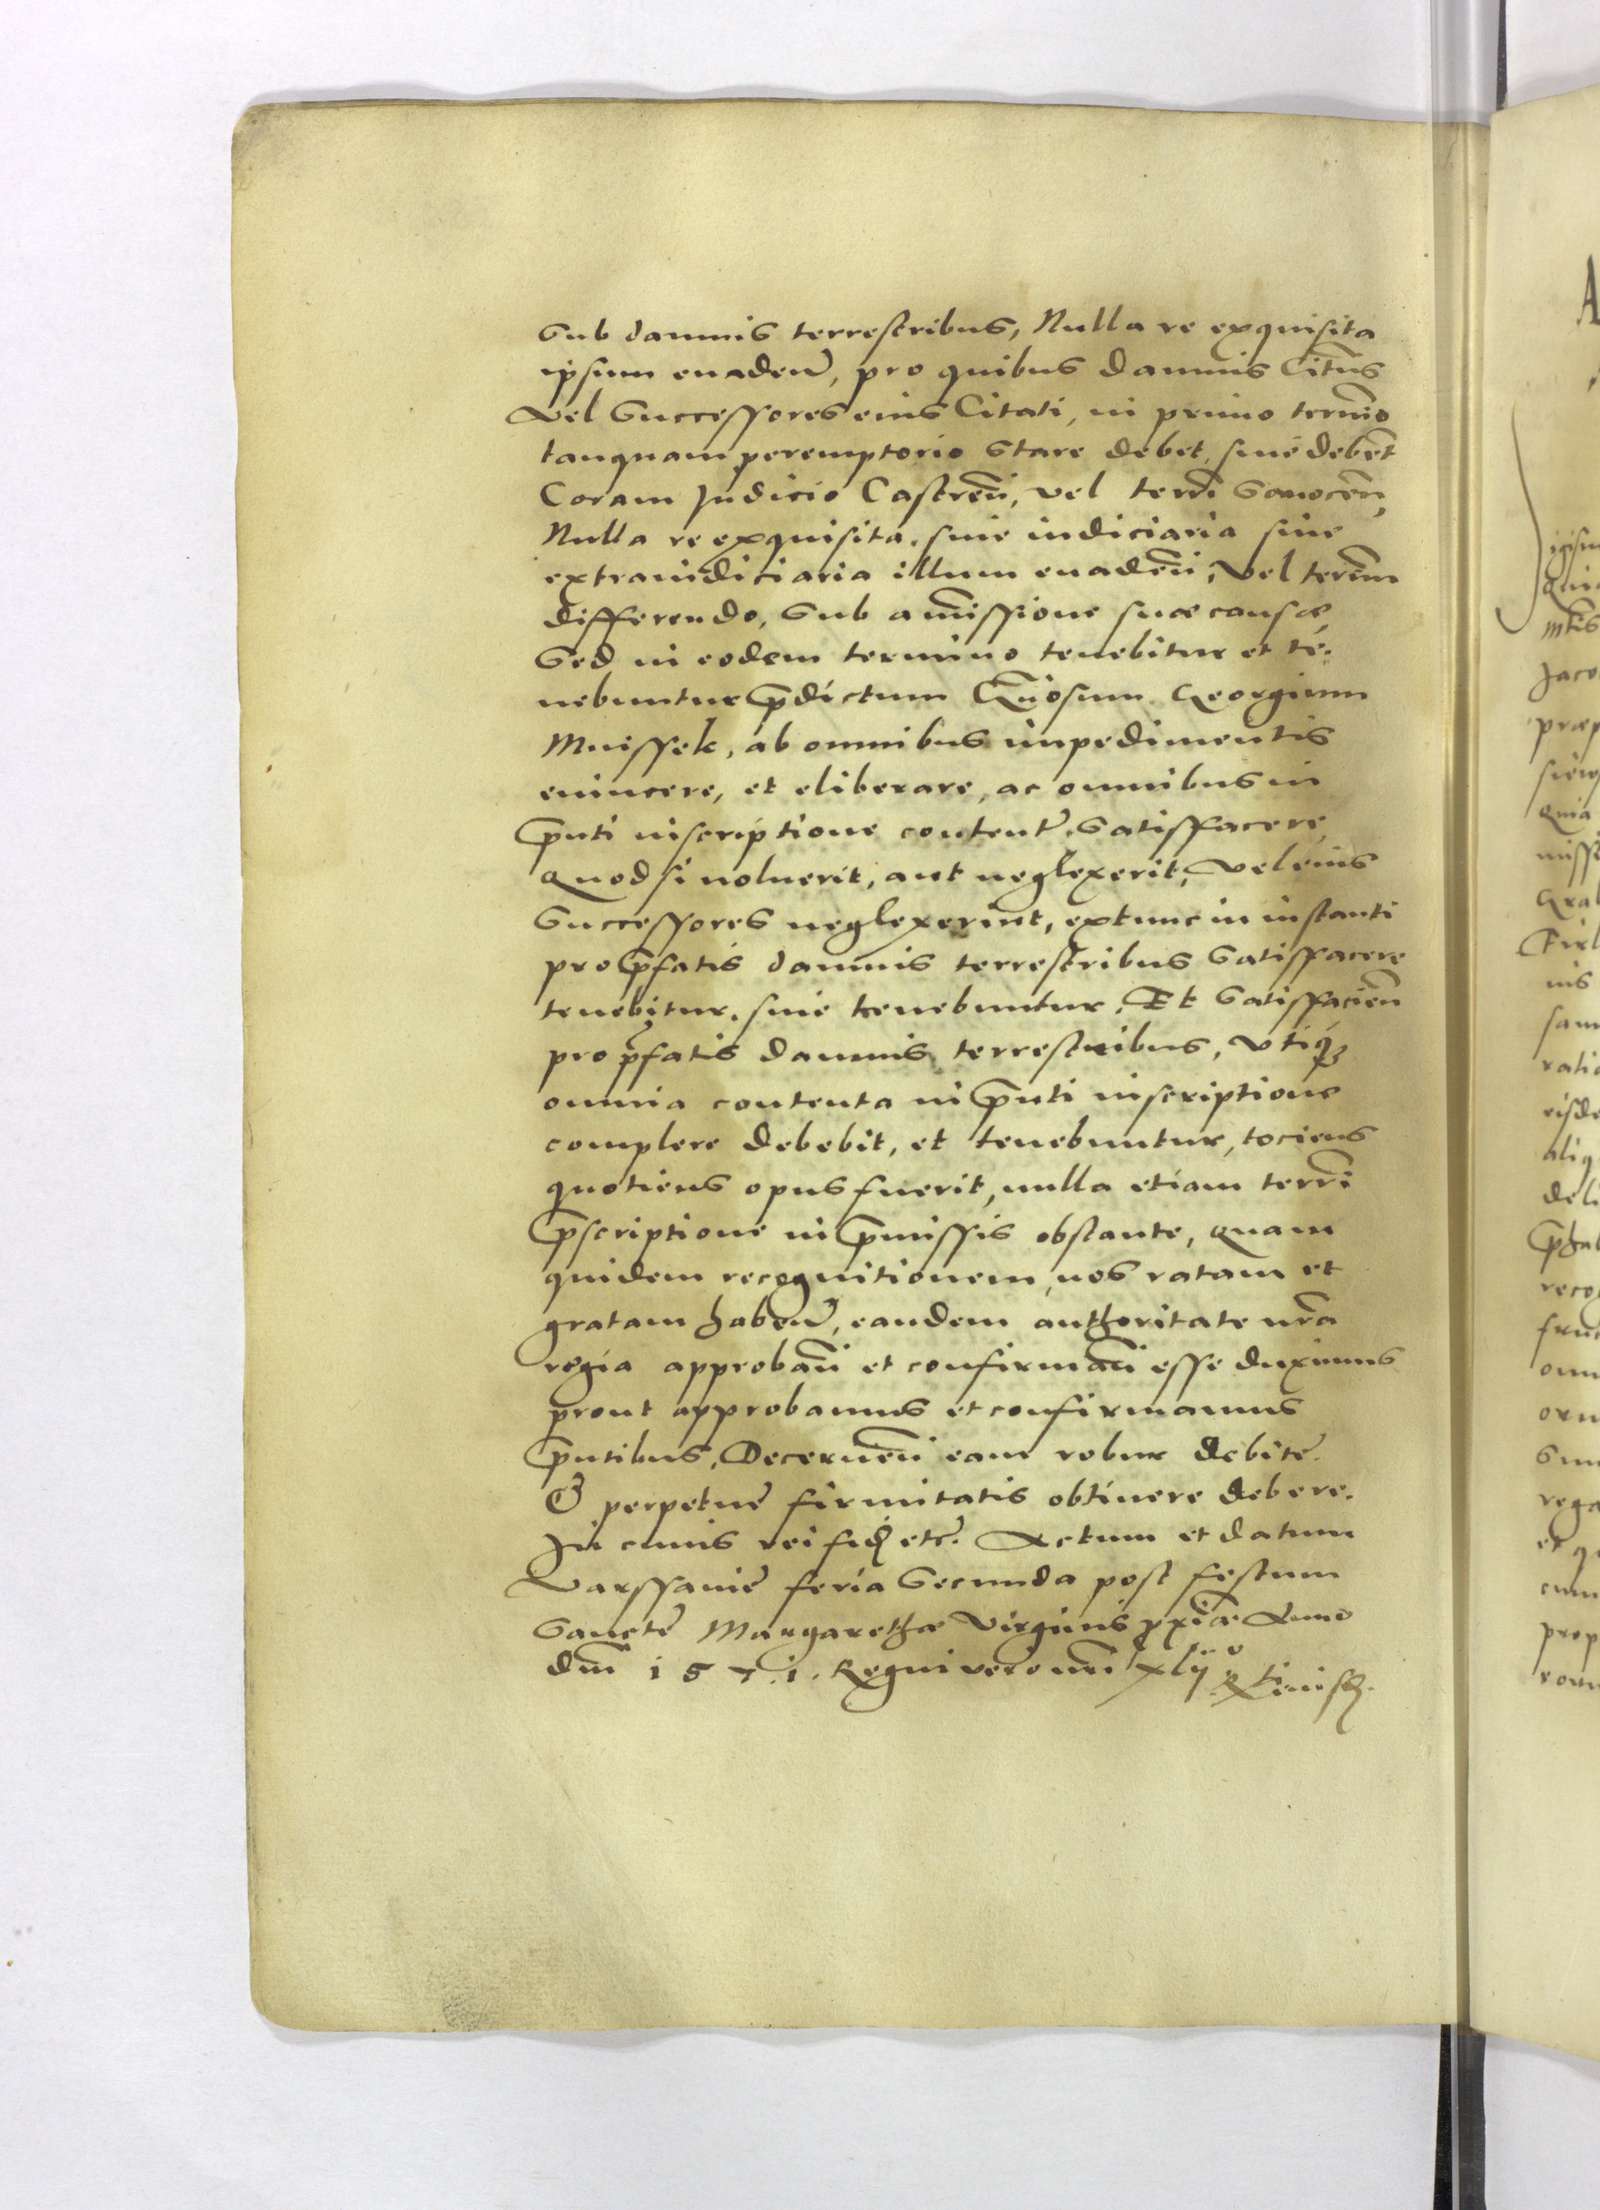 sub damnis terrestribus, Nulla re exquisita
ipsum euadeñ, pro quibus damnis Citũs
Vel Successores eius Citati, in primo termĩo
tanquam peremptorio stare debet, siue debẽt
Coram Judicio Castreñ, vel terrĩ Sanoceñ,
Nulla re exquisita, siue iudiciaria siue
extraiudiciaria illum euadeñ, Vel termĩm
differendo, sub amĩssione suæ causæ,
Sed in eodem termino tenebitur et te-
nebuntur p̃dictum Gñosum Georgium
Mnissek, ab omnibus impedimentis
euincere, et eliberare, ac omnibus in
p̃nti inscriptione contentẽ, Satisfacere
Quod si noluerit, aut neglexerit, Vel eius
Successores neglexerint, extunc in instanti
pro p̃fatis damnis terrestribus Satisfacere
tenebitur, siue tenebuntur, Et Satisfacieñ
pro p̃fatis damnis terrestribus, Vtiqꝫ
omnia contenta in p̃nti inscriptione
complere debebit, et tenebuntur, tociens
quotiens opus fuerit, nulla etiam terrĩ
p̃scriptione in p̃missis obstante, Quam
quidem recognitionem, nos ratam et
gratam habeñ, eandem authoritate nr̃a
regia approbañ et confirmañ esse duximus
prout approbamus et confirmamus
p̃ntibus, Decerneñ eam robur debitẽ
& perpetuę firmitatis obtinere debere.
In cuius rei fidẽ etc̃. Actum et datum
Varssauię feria Secunda post festum
Sanctę Margarethæ Virginis p̱xĩæ Anno
dñi 1571. Regni vero nr̃i xlij°